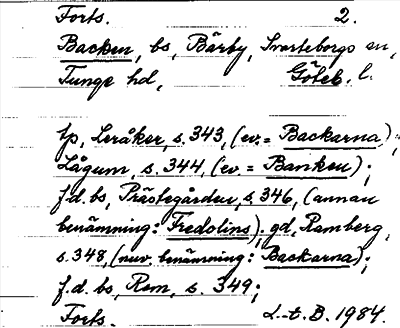 Forts. 2.
Backen, bs, Bärby, Svarteborgs sn,
Tunge hd, Göteb. l.
lp, Leråker, s. 343, (ev. = Backarna);
Lågum, s. 344, (ev. = Banken);
f.d. bs, Prästegården, s. 346, (annan
benämning: Fredolins); gd, Ramberg,
s. 348, (nuv. benämning: Backarna);
f.d. bs, Rom, s. 349;
Forts. L.-t. B. 1984.